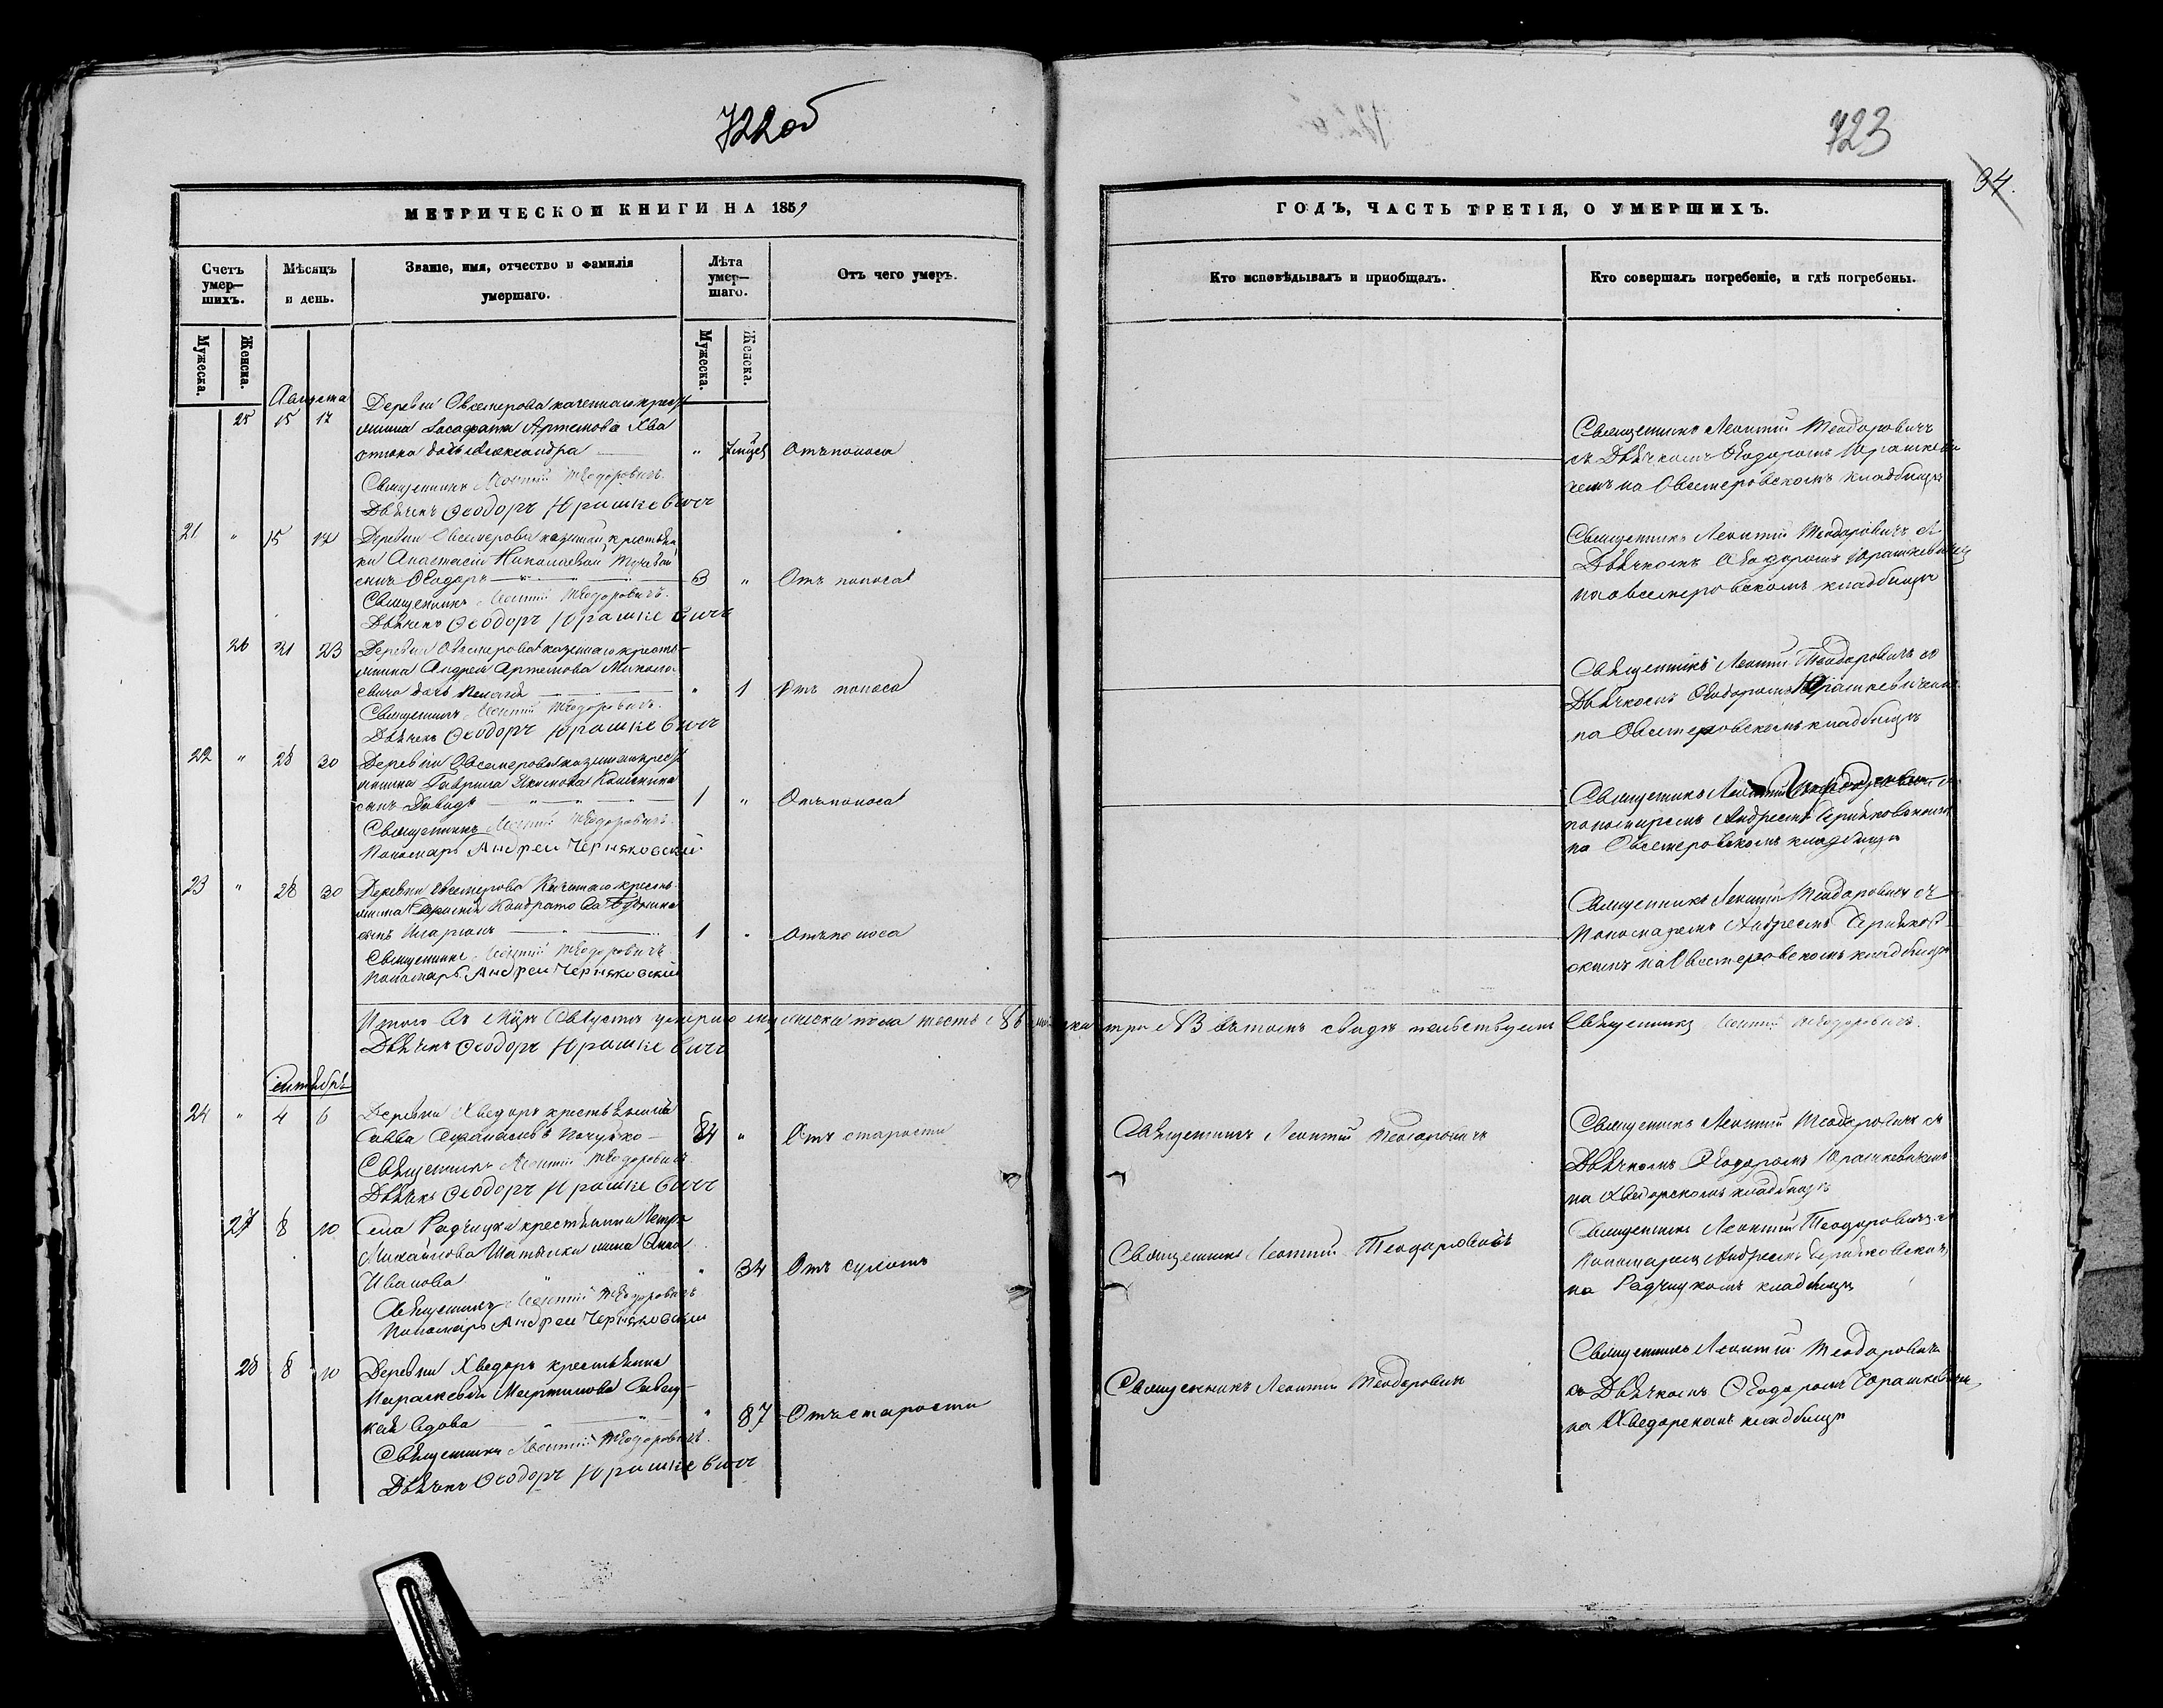 722об
МЕТРИЧЕСКОЙ КНИГИ НА 1859
Счетъ умер—шихъ.
Мѣсяцъ и день.
Званіе, имя, отчество и фамилія умершаго.
Лѣта умер—шаго.
Отъ чего умеръ.
Мужеска.
Женска.
Мужеска.
Женска.
Августа
25 15 17 Деревни Овсемерова казеннаго кресть
янина Артемова Хва
дочь Александра — " Отъ поноса
Священникъ Леонтій Теодоровичъ
Дьячекъ Ѳеодоръ Юрашкевичъ
21 " 15 17 Деревни Овсемерова казенной крестьян
ки Анастасіи Николаевой
сынъ Ѳеодоръ — 3 " Отъ поноса
Священникъ Леонтій Теодоровичъ
Дьячекъ Ѳеодоръ Юрашкевичъ
26 21 23 Деревни Овсемерова казеннаго кресть-
янина Андрея Артемова Миколо
евича дочь — " 1 Отъ поноса
Священникъ Леонтій Теодоровичъ
Дьячекъ Ѳеодоръ Юрашкевичъ
22 " 28 30 Деревни Овсемерова казеннаго кресть
янина Гаврила Якимова
сынъ Давидъ — 1 " Отъ поноса
Священникъ Леонтій Теодоровичъ
Пономарь Андрей Черняковскій
23 " 28 30 Деревни Овсемерова Казеннаго кресть
янина Кондратова
сынъ Иларіонъ — 1 " Отъ поноса
Священникъ Леонтій Теодоровичъ
Пономарь Андрей Черняковскій
Итого въ Мцѣ Августѣ умерло мужеска пола шесть
Дьячекъ Ѳеодоръ Юрашкевичъ
Сентябрь
24 " 4 6 Деревни Хведоръ крестьянинъ
Савва — 84 " Отъ старости
Священникъ Леонтій Теодоровичъ
Дьячекъ Ѳеодоръ Юрашкевичъ
27 8 10 Села Радчицка крестьянина Петра
Михайлова жена Анна
Иванова " 34 Отъ сухотъ
Священникъ Леонтій Теодоровичъ
Пономарь Андрей Черняковскій
28 8 10 Деревни Хведоръ крестьянка
Параскевія Мартинова
вдова — " 87 Отъ старости
Священникъ Леонтій Теодоровичъ
Дьячекъ Ѳеодоръ Юрашкевичъ
723
34.
ГОДЪ, ЧАСТЬ ТРЕТІЯ, О УМЕРШИХЪ.
Кто исповѣдывалъ и пріобщалъ.
Кто совершалъ погребеніе, и гдѣ погребены.
Священникъ Леонтій Теодоровичъ
съ Дьячкомъ Ѳеодоромъ Юрашкеви
чемъ на Овсемеровскомъ кладбищѣ
Священникъ Леонтій Теодоровичъ съ
Дьячкомъ Ѳеодоромъ Юрашкевичемъ
на овсемеровскомъ кладбищѣ
Священникъ Леонтій Теодоровичъ со
Дьячкомъ Ѳеодоромъ Юрашкевичемъ
на Овсемеровскомъ кладбищѣ
Священникъ Леонтій Теодоровичъ съ
пономаремъ Андреемъ Черняковскимъ
на Овсемеровскомъ кладбищѣ
Священникъ Леонтій Теодоровичъ съ
Пономаремъ Андреемъ Черняков
скимъ на Овсемеровскомъ кладбищѣ
три въ томъ свидѣтельствуемъ Священникъ Леонтій Теодоровичъ
Священникъ Леонтій Теодоровичъ
Священникъ Леонтій Теодоровичъ съ
Дьячкомъ Ѳеодоромъ Юрашкевичемъ
на Хведорскомъ кладбищѣ
Священникъ Леонтій Теодоровичъ
Священникъ Леонтій Теодоровичъ съ
Пономаремъ Андреемъ Черняковскимъ
на Радчицкомъ кладбищѣ
Священникъ Леонтій Теодоровичъ
Священникъ Леонтій Теодоровичъ
со Дьячкомъ Ѳеодоромъ Юрашкевичемъ
на Хведорскомъ кладбищѣ